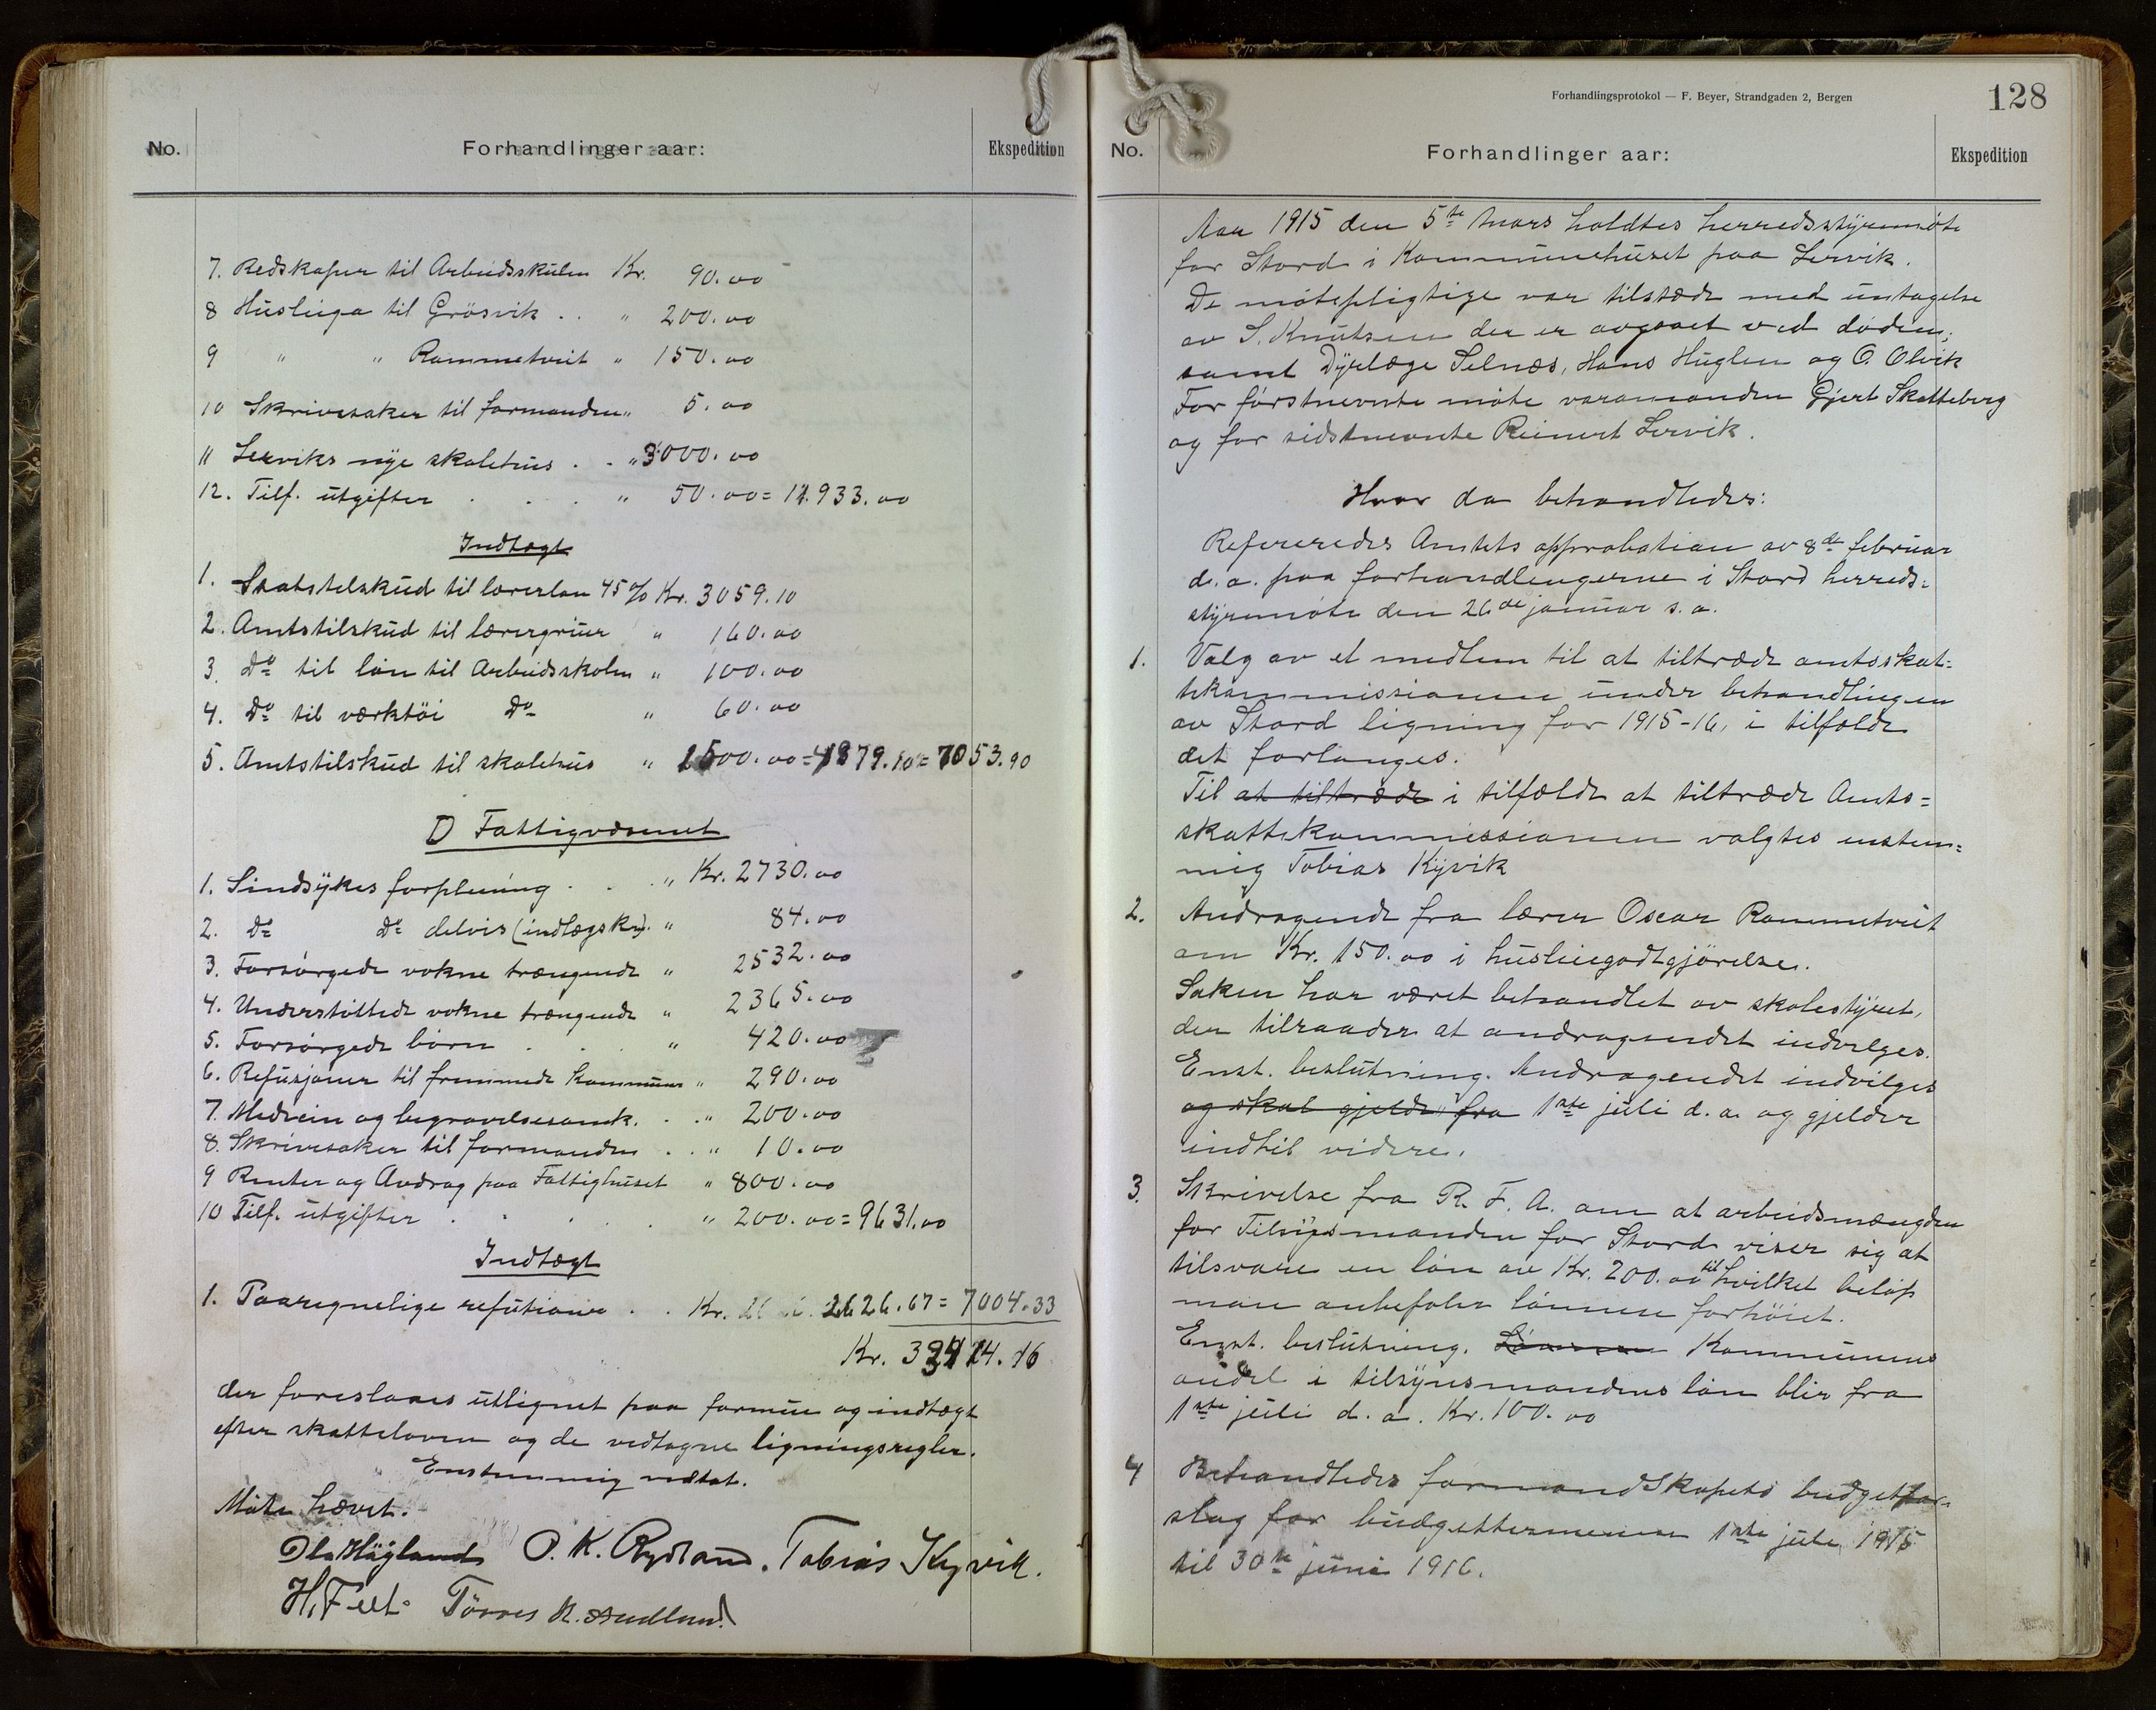 No.
Forhandlinger aar:
Ekspedition
7. Redskaper til Arbeidsskulen Kr. 90.00
8 Husleiga til Grösvik . . " 200.00
9 " " Rommetveit " 150.00
10 Skrivesaker til formanden " 5.00
11 Lerviks nye skolehus . . " 3000.00
12. Tilf. utgifter . . . " 50.00 = 11.933.00
Indtægt
1. Statstilskud til lærerløn 45% Kr. 3059.10
2. Amtstilskud til lærergruer " 160.00
3. Do til løn til Arbeidsskolen " 100.00
4. Do til værktöi Do " 60.00
5. Amtstilskud til skolehus " 1500.00 = 4879.10 = 7053.90
D Fattigvæsenet
1. Sindsykes forpleining . . " Kr. 2730.00
2. Do Do delvis (indlægskr). " 84.00
3. Forsörgede vokne trængende " 2532.00
4. Understöttede vokne trængende " 2365.00
5. Forsörgede börn . . . " 420.00
6. Refusjoner til fremmede Kommuner " 290.00
7. Medicin og begravelsesomk. . . " 200.00
8. Skrivesaker til formanden . . " 10.00
9 Renter og Avdrag paa Fattighuset " 800.00
10 Tilf. utgifter . . . . " 200.00 = 9631.00
Indtægt
1. Paaregnelige refutioner . . Kr. 2626.67 = 7004.33
Kr.
der foreslaaes utlignet paa formue og indtægt
efter skatteloven og de vedtagne ligningsregler.
Enstemmig vedtat.
Möte hævet.
Ola Høyland O. K. Rydland. Tobias Kyvik.
H. Feet Törres N. Aadland
Forhandlingsprotokol — F. Beyer, Strandgaden 2, Bergen
128
No.
Forhandlinger aar:
Ekspedition
Aar 1915 den 5te Mars holdtes herredsstyremöte
for Stord i Kommunehuset paa Lervik.
De mötepligtige var tilstæde med untagelse
av S. Knutsen der er avgaaet ved döden,
samt Dyrlæge Selnæs, Hans Huglen og O. Olvik
For förstnevnte möte varamanden Gjert Skatteberg
og for sidstnevnte Reinert Lervik.
Hvor da behandledes:
Refereredes Amtets approbation av 8de februar
d. a. paa forhandlingerne i Stord herreds-
styremöte den 26de januar s. a.
1. Valg av et medlem til at tiltræde amtsskat-
tekommissionen under behandlingen
av Stord ligning for 1915-16, i tilfælde
det forlanges.
Til at tiltræde i tilfælde at tiltræde Amts-
skattekommissionen valgtes enstem-
mig Tobias Kyvik
2. Andragende fra lærer Oscar Rommetveit
om Kr. 150.00 i husleiegodtgjörelse.
Saken har været behandlet av skolestyret,
der tilraader at andragendet indvilges.
Enst. beslutning. Andragendet indvilges
og skal gjelde fra 1ste juli d. a. og gjelder
indtil videre.
3. Skrivelse fra R. F. A. om at arbeidsmængden
for Tilsynsmanden for Stord viser sig at
tilsvare en lön av Kr. 200.00 til hvilket belöp
man anbefaler lönnen forhöiet.
Enst. beslutning. Lönnen Kommunens
andel i tilsynsmandens lön blir fra
1ste juli d. a. Kr. 100.00
4 Behandledes formandskapets budgetfor-
slag for budgetterminen 1ste juli 1915
til 30te juni 1916.